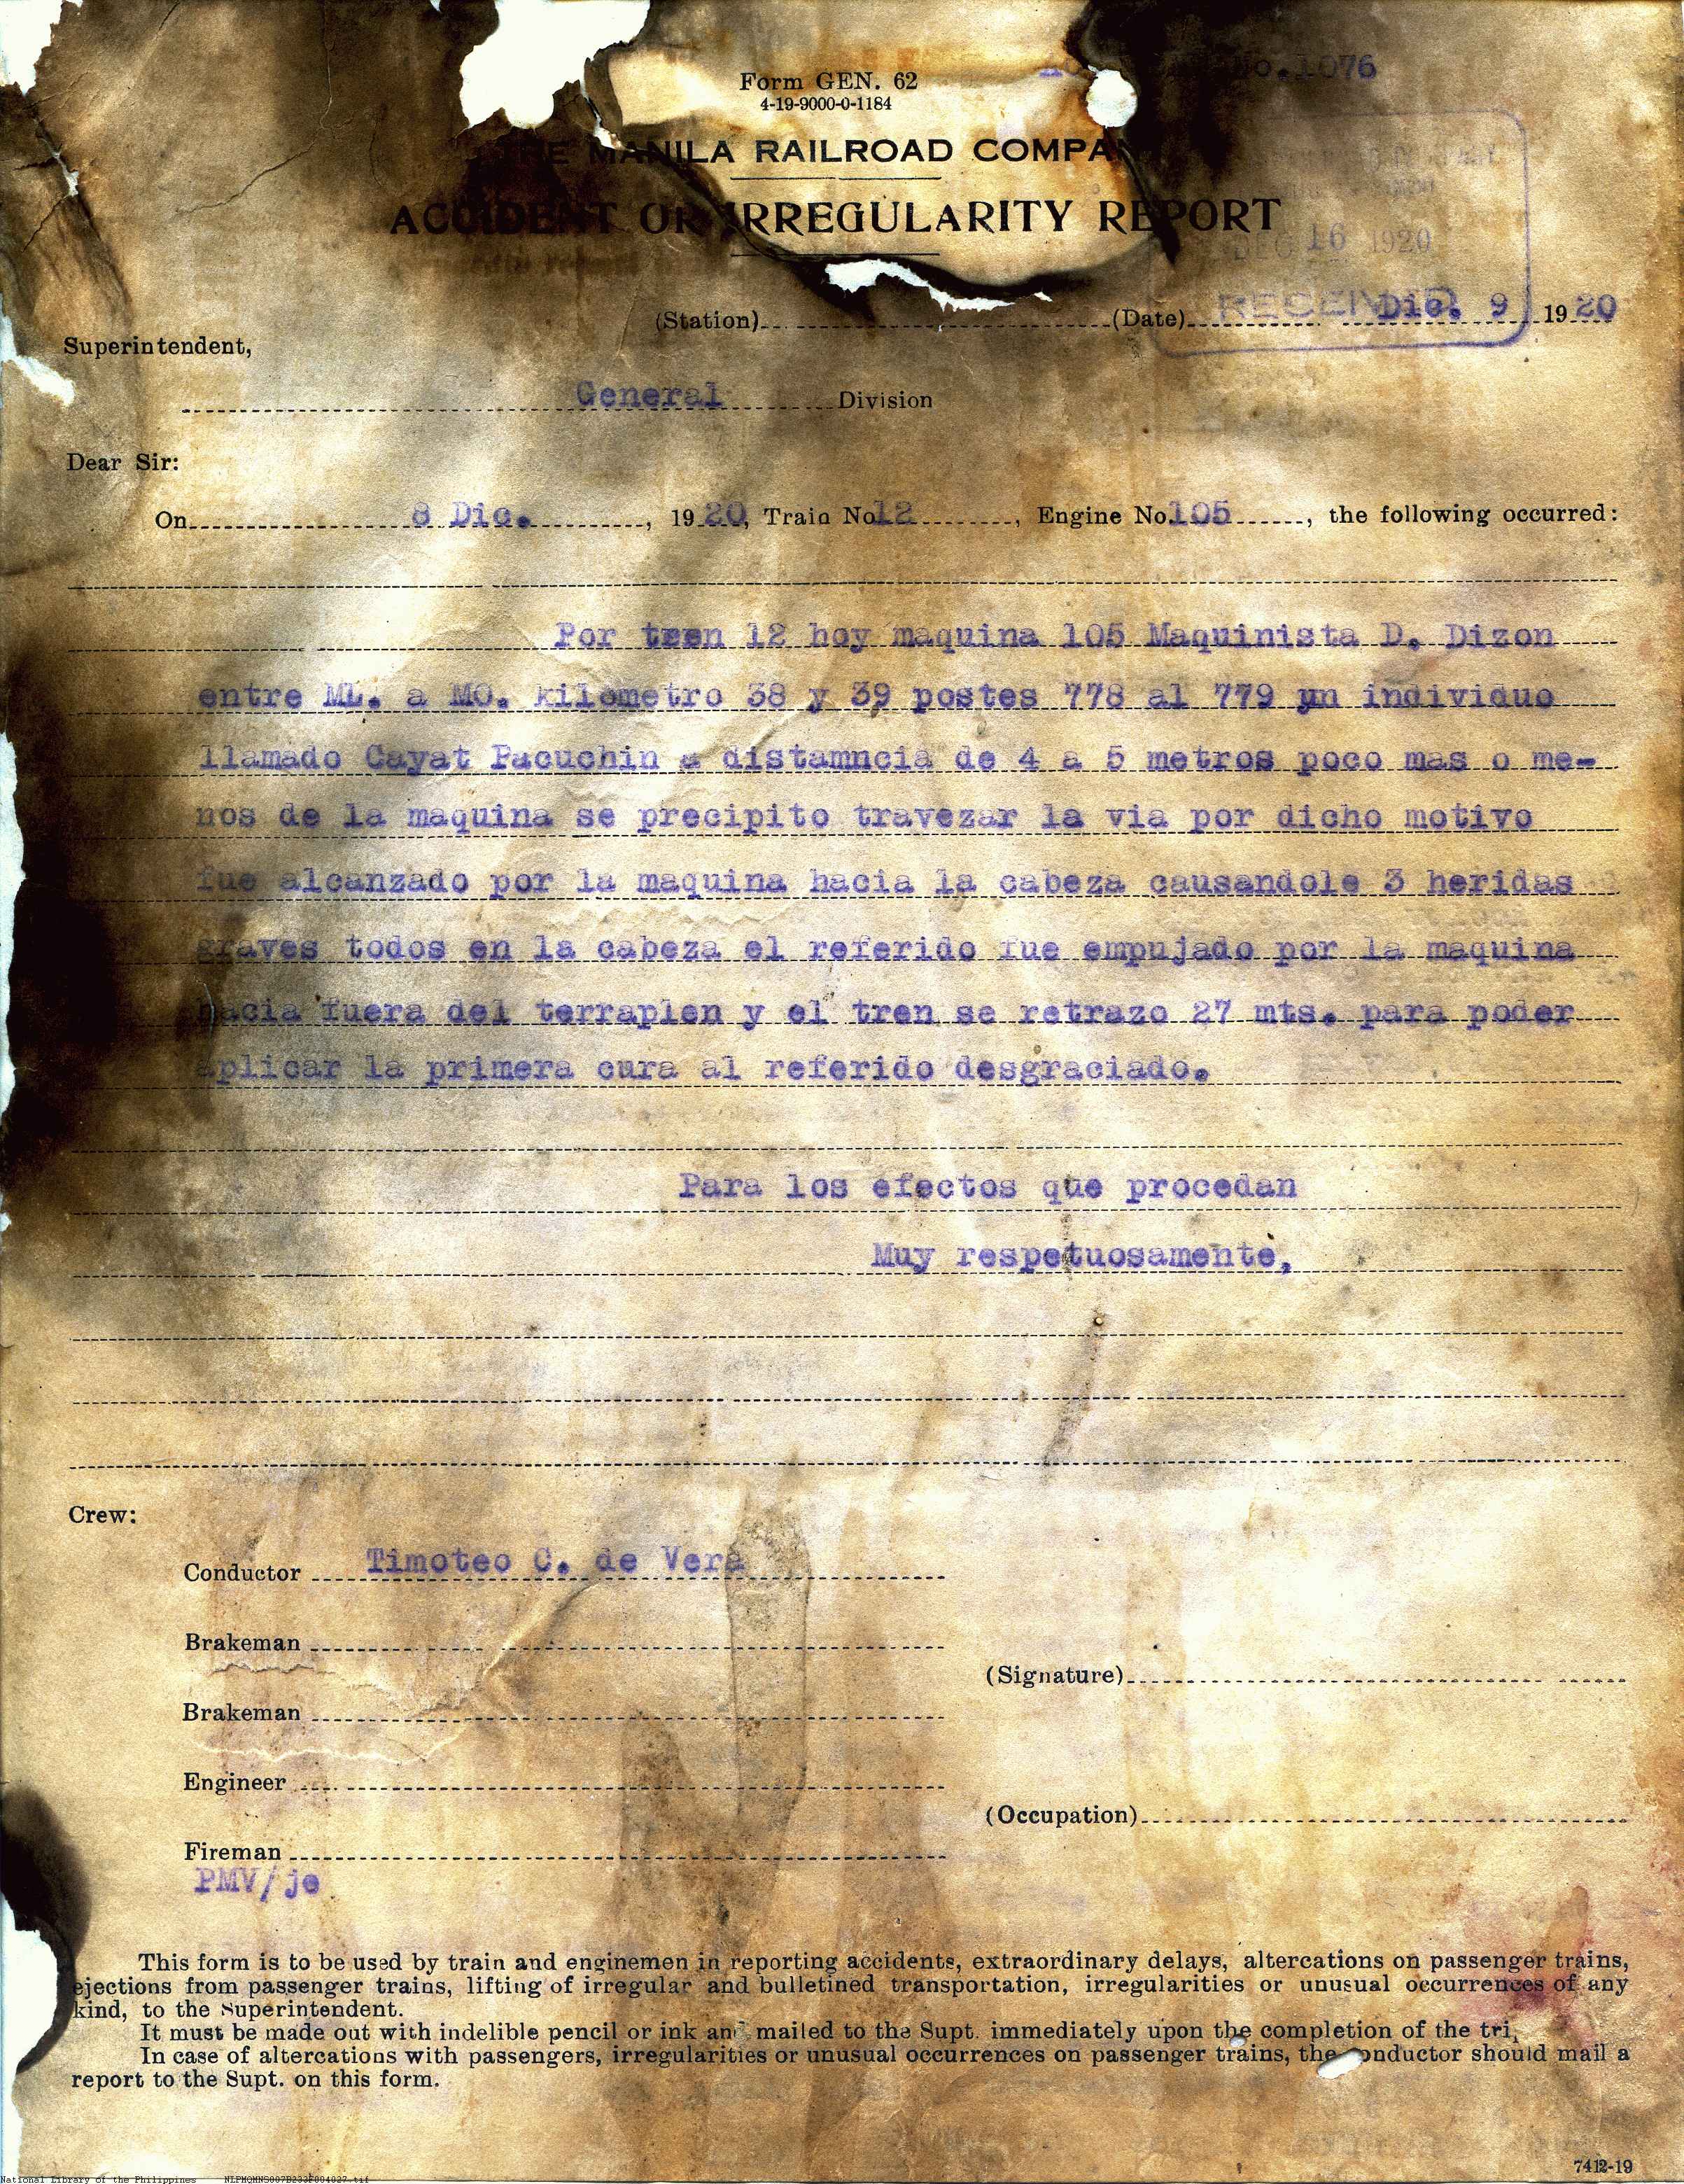 Form GEN. 62
No. 1076
4-19-9000-0-1184
THE MANILA RAILROAD COMPA
ACCIDENT OR IRREGULARITY REPORT
DEC 16 1920
RECEIVED
(Station) (Date) Dic. 9 1920
Superintendent,
General Division
Dear Sir:
On 8 Dic. , 1920, Train No 12 , Engine No. 105 , the following occurred:
Por tren 12 hoy maquina 105 Maquinista D. Dizon
entre ML. a MO. kilometro 38 y 39 postes 778 al 779 un individuo
llamado Cayat Pacuchin a distamncia de 4 a 5 metros poco mas o me-
nos de la maquina se precipito travezar la via por dicho motivo
fue alcanzado por la maquina hacia la cabeza causandole 3 heridas
graves todos en la cabeza el referido fue empujado por la maquina
hacia fuera del terraplen y el tren se retrazo 27 mts. para poder
aplicar la primera cura al referido desgraciado.
Para los efectos que procedan
Muy respetuosamente,
Crew:
Conductor Timoteo C. de Vera
Brakeman
(Signature)
Brakeman
Engineer
(Occupation)
Fireman
PMV/je
This form is to be used by train and enginemen in reporting accidents, extraordinary delays, altercations on passenger trains,
ejections from passenger trains, lifting of irregular and bulletined transportation, irregularities or unusual occurrences of any
kind, to the Superintendent.
It must be made out with indelible pencil or ink and mailed to the Supt. immediately upon the completion of the tri
In case of altercations with passengers, irregularities or unusual occurrences on passenger trains, the conductor should mail a
report to the Supt. on this form.
7412-19
National Library of the Philippines